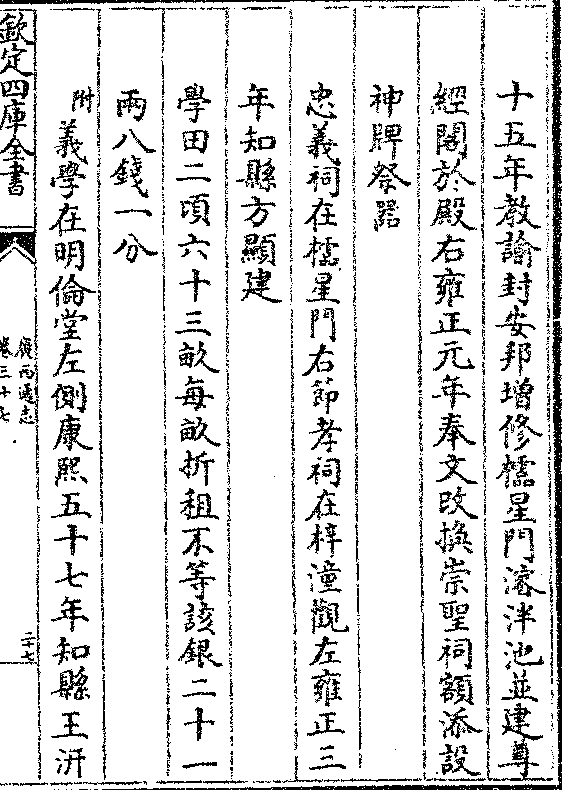 十五年教諭封安邦增修櫺星門濬泮池並建尊
經閣於殿右雍正元年奉文改換崇聖祠額添設
神牌祭器
忠義祠在櫺星門右節孝祠在梓潼觀左雍正三
年知縣方顯建
學田二頃六十三畝每畝折租不等該銀二十一
兩八錢一分
附義學在明倫堂左側康熙五十七年知縣王汧
欽定四庫全書
廣西通志
卷三十七
三十七